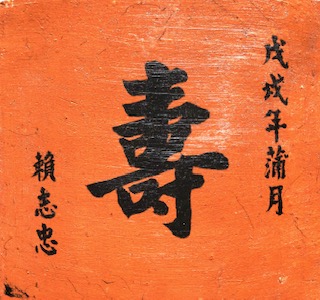 戊戌年蒲月
壽
賴志忠